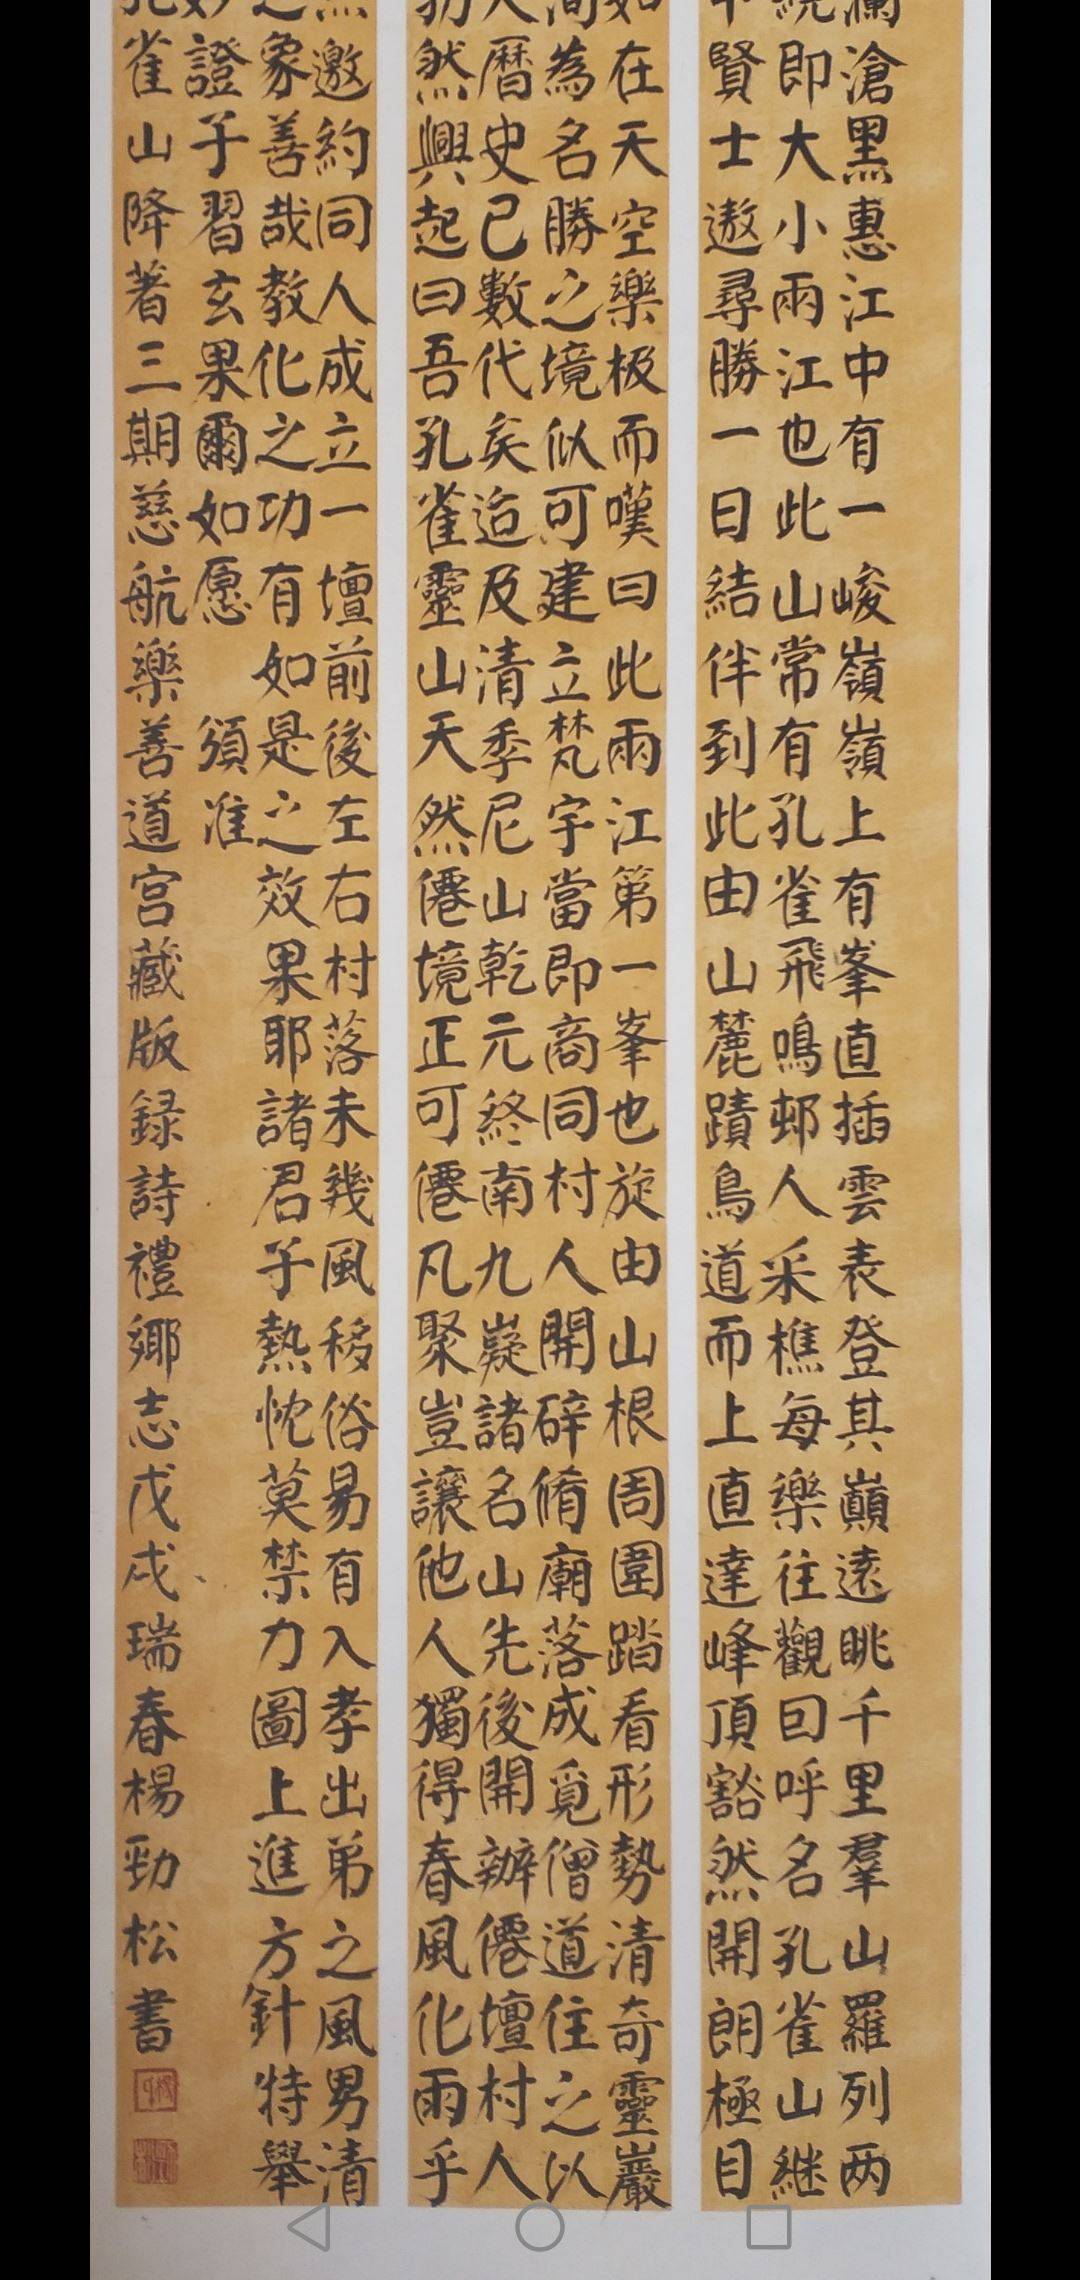 瀾滄黑惠江中有一峻嶺嶺上有峯直插雲表登其巔遠眺千里羣山羅列两
繞即大小兩江也此山常有孔雀飛鳴邨人采樵每樂往觀回呼名孔雀山継
中賢士遨尋勝一日結伴到此由山麓蹟鳥道而上直達峰頂豁然開朗極目
如在天空樂极而嘆曰此兩江第一峯也旋由山根周圍踏看形勢清奇靈巖
间為名勝之境似可建立梵宇當即商同村人開辟脩廟落成覓僧道住之以
久曆史已數代矣迨及清季尼山乾元終南九嶷諸名山先後開辦僊壇村人
勃然興起曰吾孔雀靈山天然僊境正可僊凡聚豈讓他人獨得春風化雨乎
焦邀約同人成立一壇前後左右村落未幾風移俗易有入孝出弟之風男清
之象善哉教化之功有如是之效果耶諸君子熱忱莫禁力圖上進方針特舉
妙證子習玄果爾如愿 須准
孔雀山降著三期慈航樂善道宫藏版録詩禮鄉志戊戌瑞春楊勁松書